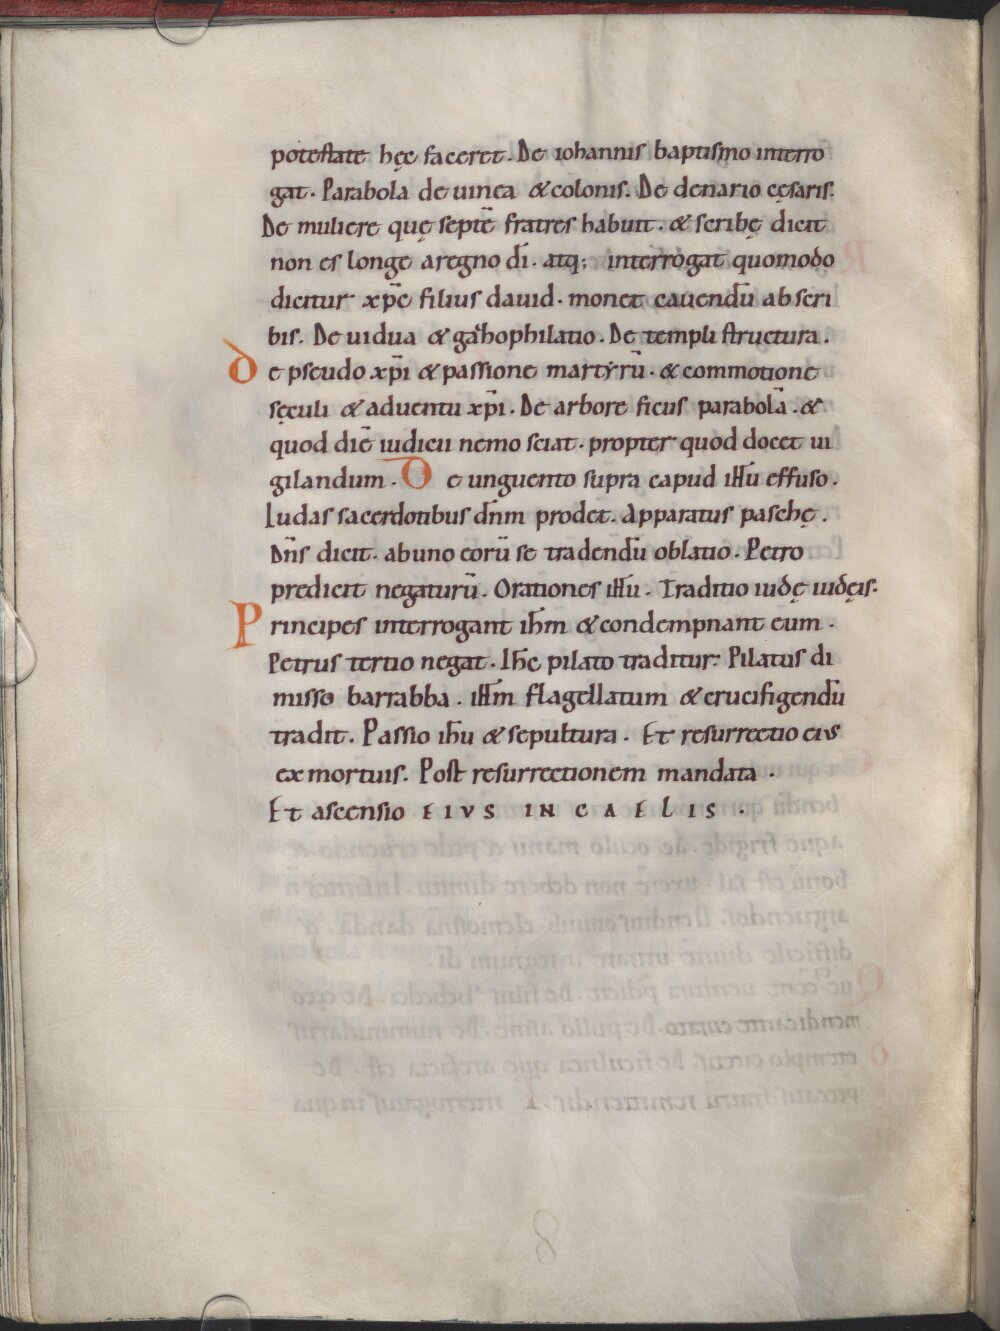 potestate hęc faceret. De iohannis baptismo interro
gat. Parabola de uinea & colonis. De denario cęsaris.
De muliere quę septē fratres habuit. & scribę dicit
non es longe a regno dī. atq; interrogat quomodo
dicitur xp̄c filius dauid. monet cauendū ab scri
bis. De uidua & gazhophilatio. De templi structura.
De pseudo xp̄i & passione martyrū. & commotione
sęculi & aduentu xp̄i. De arbore ficus parabolā. &
quod diē iudicii nemo sciat. propter quod docet ui
gilandum. De unguento supra capud ih̄u effuso.
Iudas sacerdotibus dn̄m prodet. Apparatus paschę.
Dn̄s dicit. ab uno eorū se tradendū oblatio. Petro
predicit negaturū. Orationes ih̄u. Traditio iudę iudęis.
Principes interrogant ih̄m & condempnant eum.
Petrus tertio negat. Ih̄c pilato traditur. Pilatus di
misso barrabba. ih̄m flagellatum & crucifigendū
tradit. Passio ih̄u & sepultura. Et resurrectio eius
ex mortuis. Post resurrectionem mandata.
Et ascensio EIVS IN CAELIS.
8